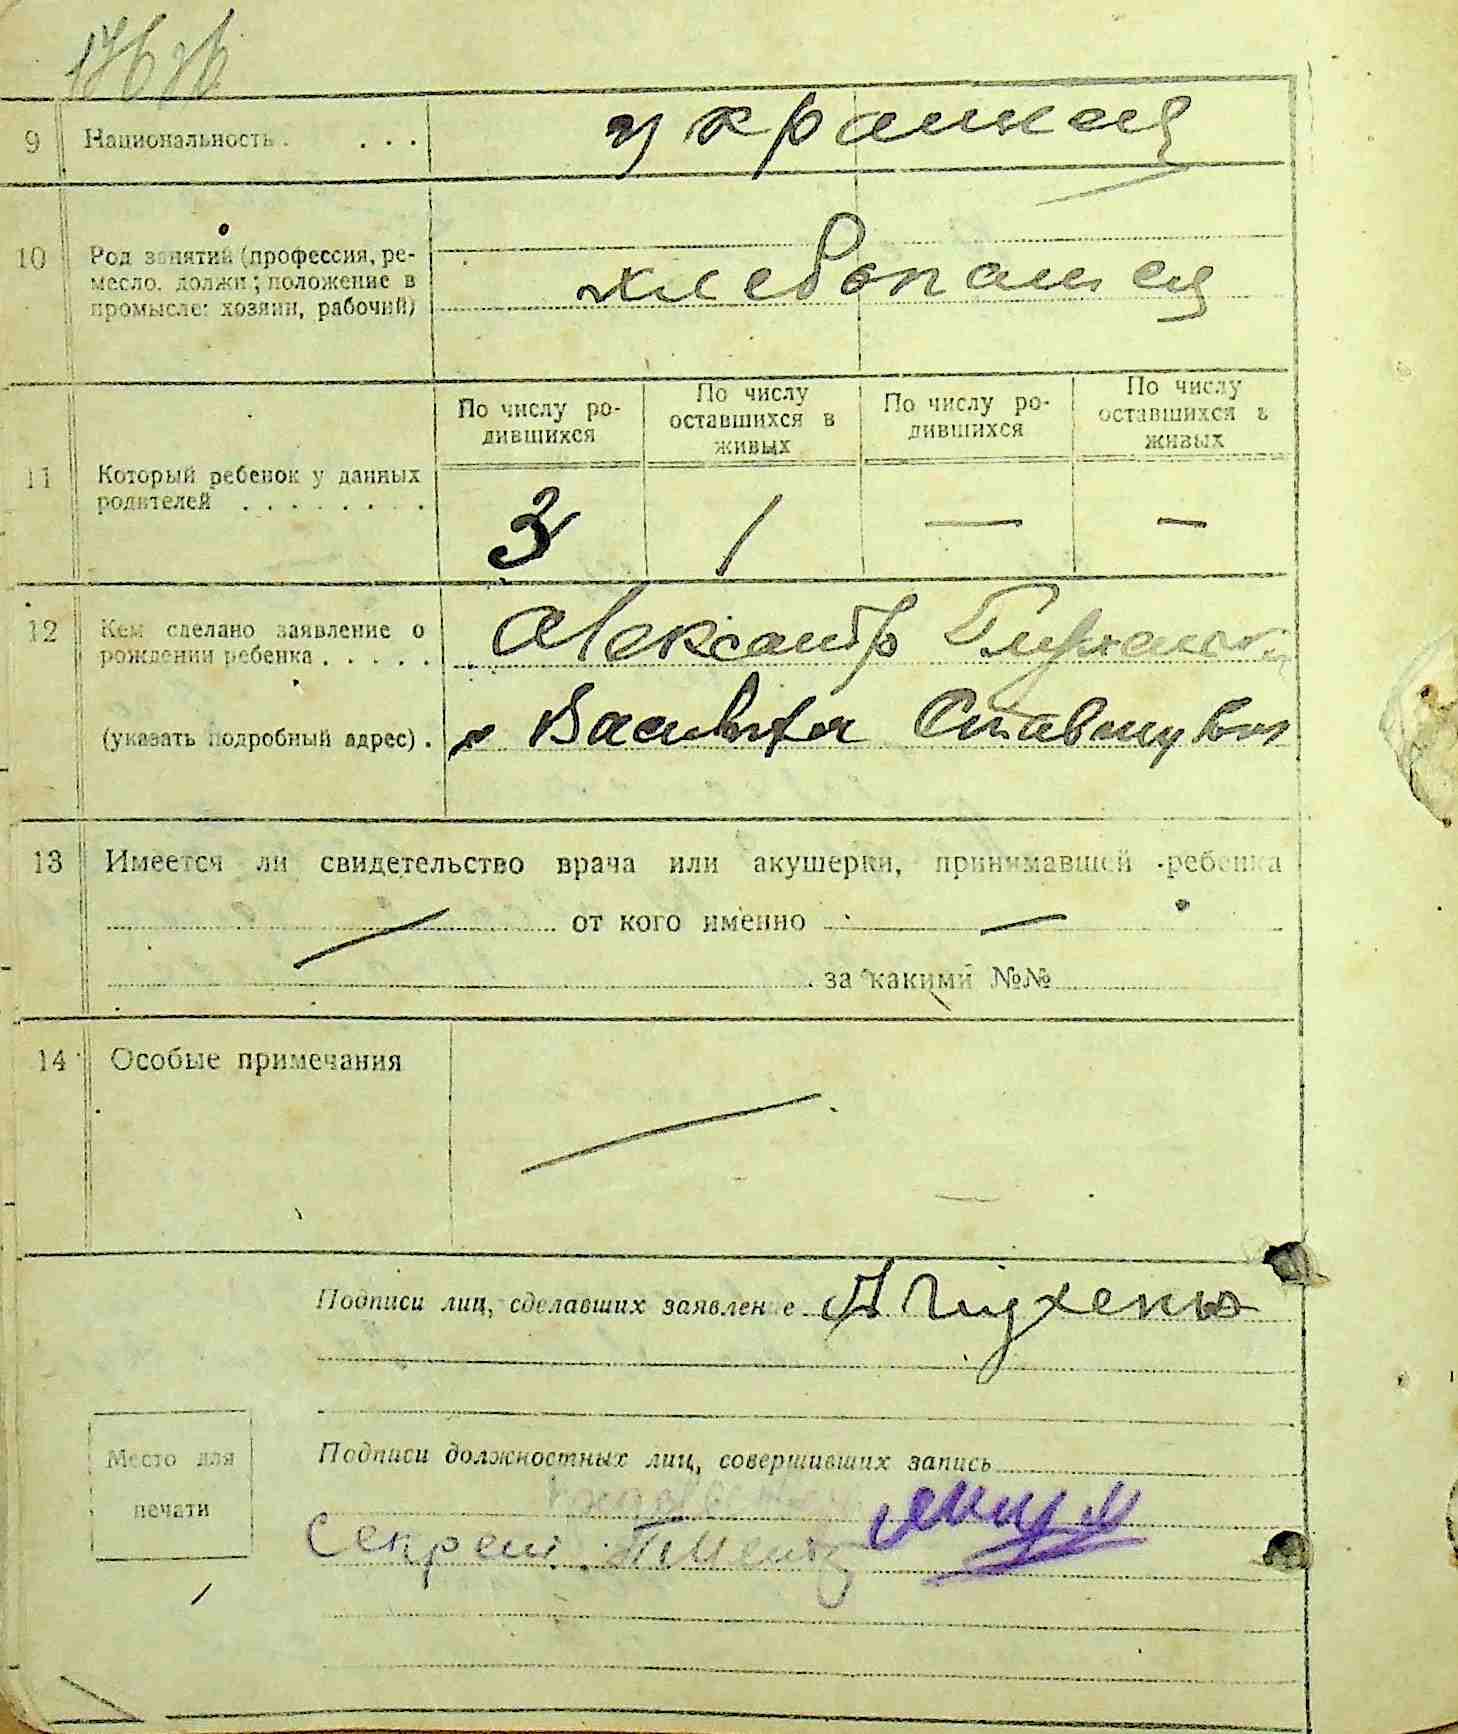 9 Национальность . . . . украинец
10 Род занятий (профессия, ре-
месло, должн; положение в
промысле: хозяин, рабочий)
хлебопашец
По числу ро-
дившихся
По числу
оставшихся в
живых
По числу ро-
дившихся
По числу
оставшихся в
живых
11 Который ребенок у данных
родителей . . . . . . . .
3 1 — —
12 Кем сделано заявление о
рождении ребенка . . . . .
Александр
(указать подробный адрес) .
13 Имеется ли свидетельство врача или акушерки, принимавшей ребенка
— от кого именно —
за какими №№
14 Особые примечания —
Подписи лиц, сделавших заявление
Место для
печати
Подписи должностных лиц, совершивших запись
Секрет.